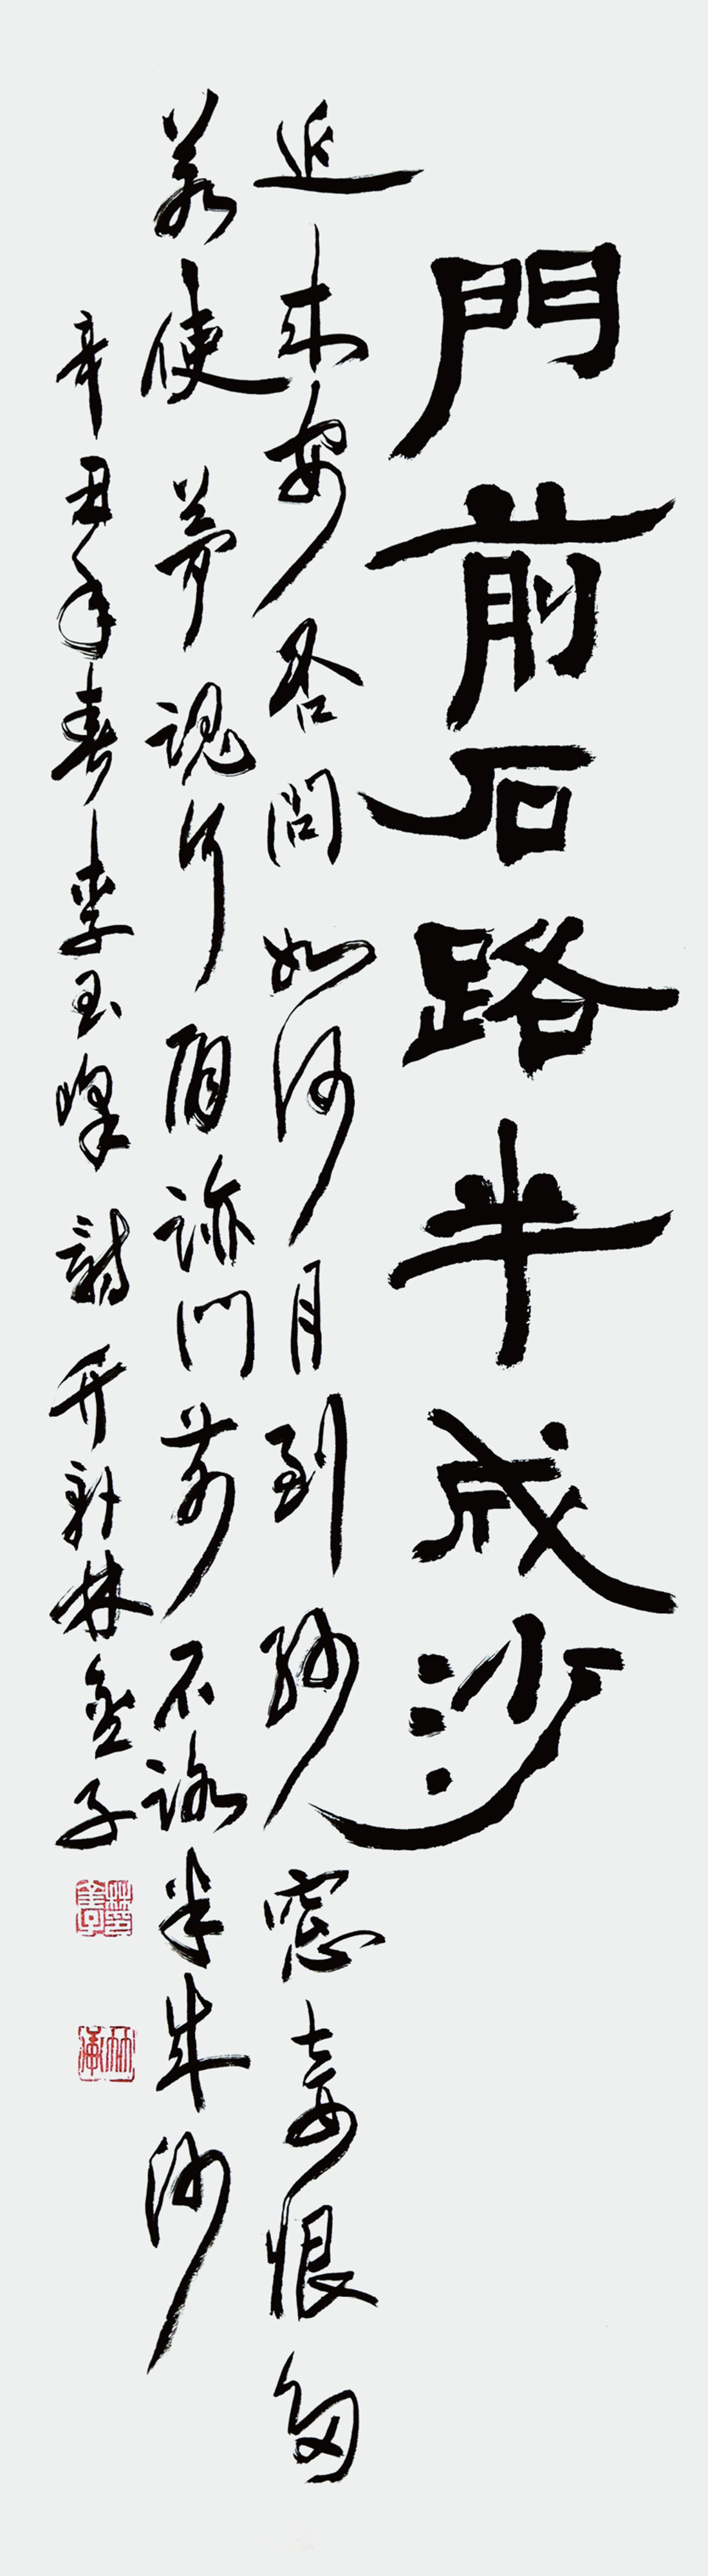 門前石路半成沙
近來安否問如何月到紗窓妾恨多
若使夢魂行有跡門前石路半成沙
辛丑年春李玉峯詩 林